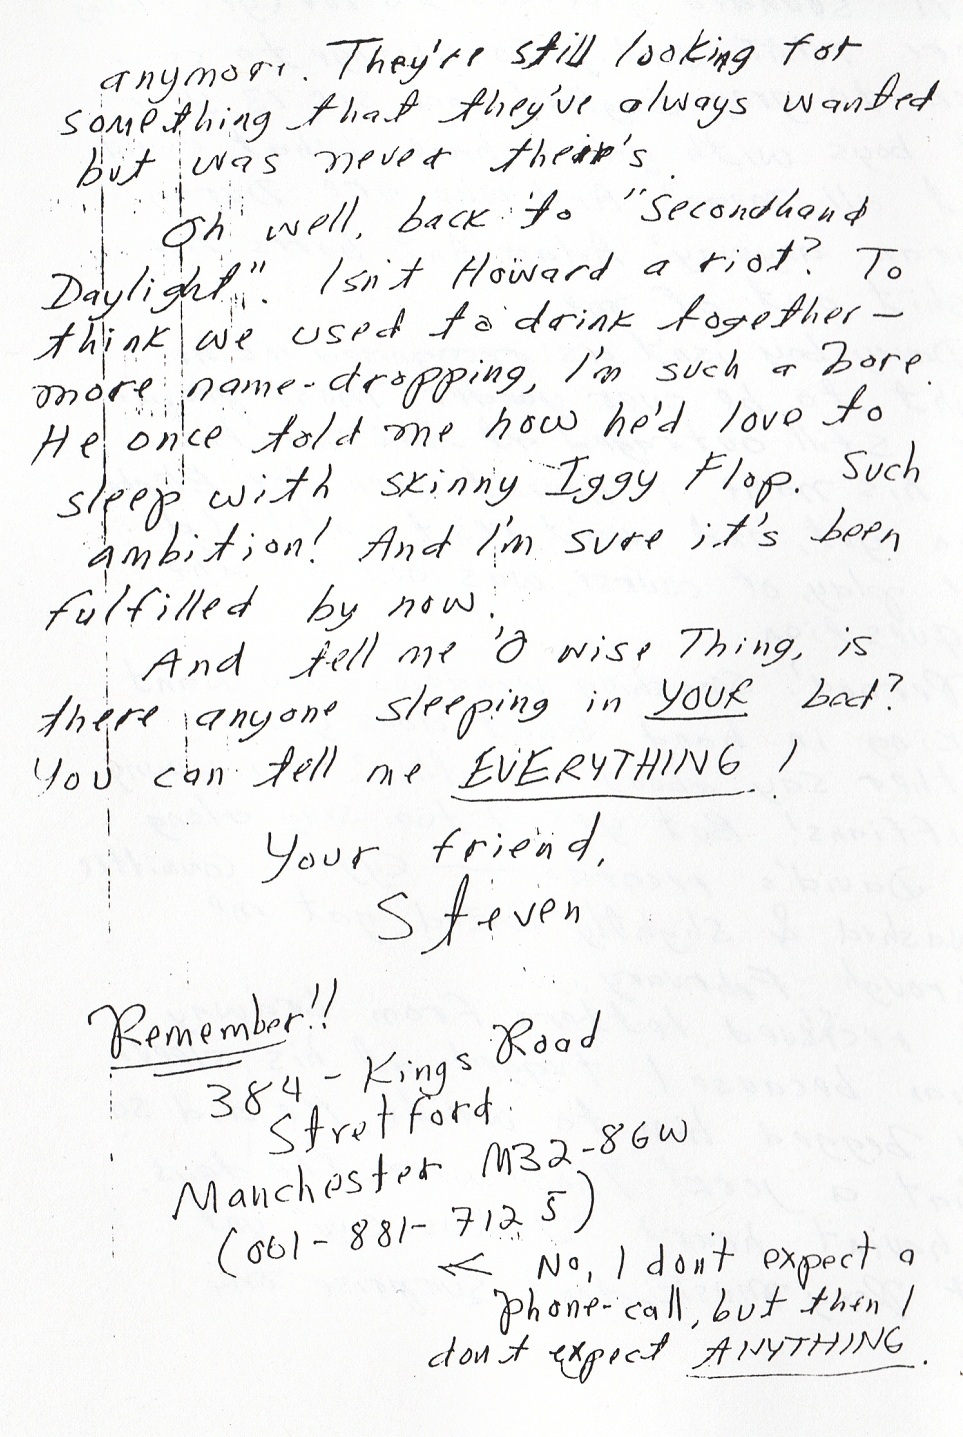 anymore. They're still looking for
something that they've always wanted
but was never their's.
Oh well, back to "Secondhand
Daylight". Isn't Howard a riot? To
think we used to drink together—
more name-dropping, I'm such a Bore.
He once told me how he'd love to
sleep with skinny Iggy Flop. Such
ambition! And I'm sure it's been
fulfilled by now.
And tell me 'O wise Thing, is
there anyone sleeping in YOUR bed?
You can tell me EVERYTHING!
Your friend,
Steven
Remember!!
384 - Kings Road
Stretford.
Manchester M32-8GW
(061-881-7125)
< No, I don't expect a
phone-call, but then I
dont expect ANYTHING.